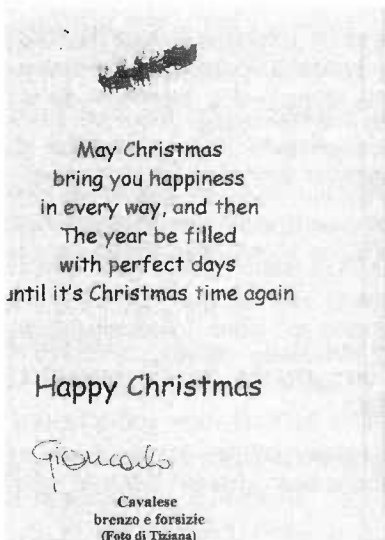 May Christmas
bring you happiness
in every way, and then
The year be filled
with perfect days
until it's Christmas time again
Happy Christmas
Giancarlo
Cavalese
brenzo e forsizie
(Foto di Tiziana)